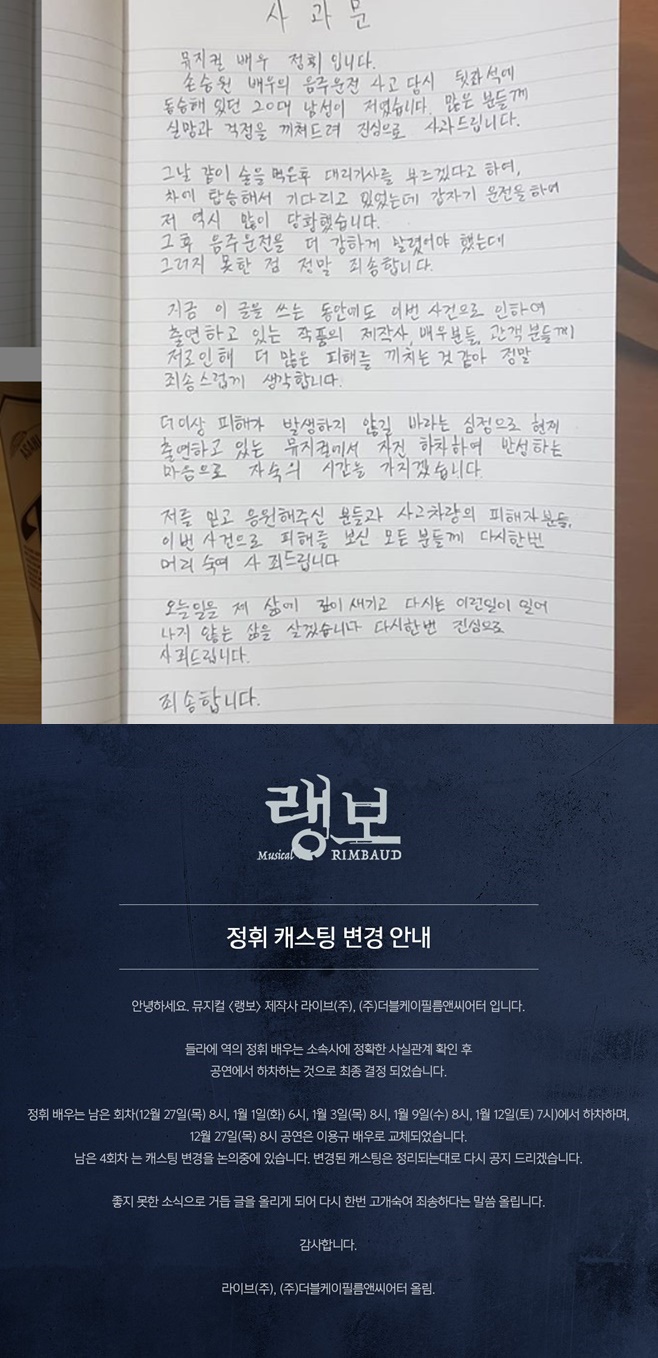 사 과 문
뮤지컬 배우 정휘 입니다.
손승원 배우의 음주운전 사고 당시 뒷좌석에
동승해 있던 20대 남성이 저였습니다. 많은 분들께
실망과 걱정을 끼쳐드려 진심으로 사과드립니다.
그날 같이 술을 먹은후 대리기사를 부르겠다고 하여,
차에 탑승해서 기다리고 있었는데 갑자기 운전을 하여
저 역시 많이 당황했습니다.
그 후 음주운전을 더 강하게 말렸어야 했는데
그러지 못한 점 정말 죄송합니다.
지금 이 글을 쓰는 동안에도 이번 사건으로 인하여
출연하고 있는 작품의 제작사, 배우분들, 관객분들께
저로인해 더 많은 피해를 끼치는 것 같아 정말
죄송스럽게 생각합니다.
더이상 피해가 발생하지 않길 바라는 심정으로 현재
출연하고 있는 뮤지컬에서 자진 하차하여 반성하는
마음으로 자숙의 시간을 가지겠습니다.
저를 믿고 응원해주신 분들과 사고차량의 피해자분들,
이번 사건으로 피해를 보신 모든 분들께 다시한번
머리 숙여 사죄드립니다
오늘일을 제 삶에 깊이 새기고 다시는 이런일이 일어
나지 않는 삶을 살겠습니다 다시한번 진심으로
사죄드립니다.
죄송합니다.
랭보
Musical RIMBAUD
정휘 캐스팅 변경 안내
안녕하세요. 뮤지컬 <랭보> 제작사 라이브(주), (주)더블케이필름앤씨어터 입니다.
들라에 역의 정휘 배우는 소속사에 정확한 사실관계 확인 후
공연에서 하차하는 것으로 최종 결정 되었습니다.
정휘 배우는 남은 회차(12월 27일(목) 8시, 1월 1일(화) 6시, 1월 3일(목) 8시, 1월 9일(수) 8시, 1월 12일(토) 7시)에서 하차하며,
12월 27일(목) 8시 공연은 이용규 배우로 교체되었습니다.
남은 4회차 는 캐스팅 변경을 논의중에 있습니다. 변경된 캐스팅은 정리되는대로 다시 공지 드리겠습니다.
좋지 못한 소식으로 거듭 글을 올리게 되어 다시 한번 고개숙여 죄송하다는 말씀 올립니다.
감사합니다.
라이브(주), (주)더블케이필름앤씨어터 올림.